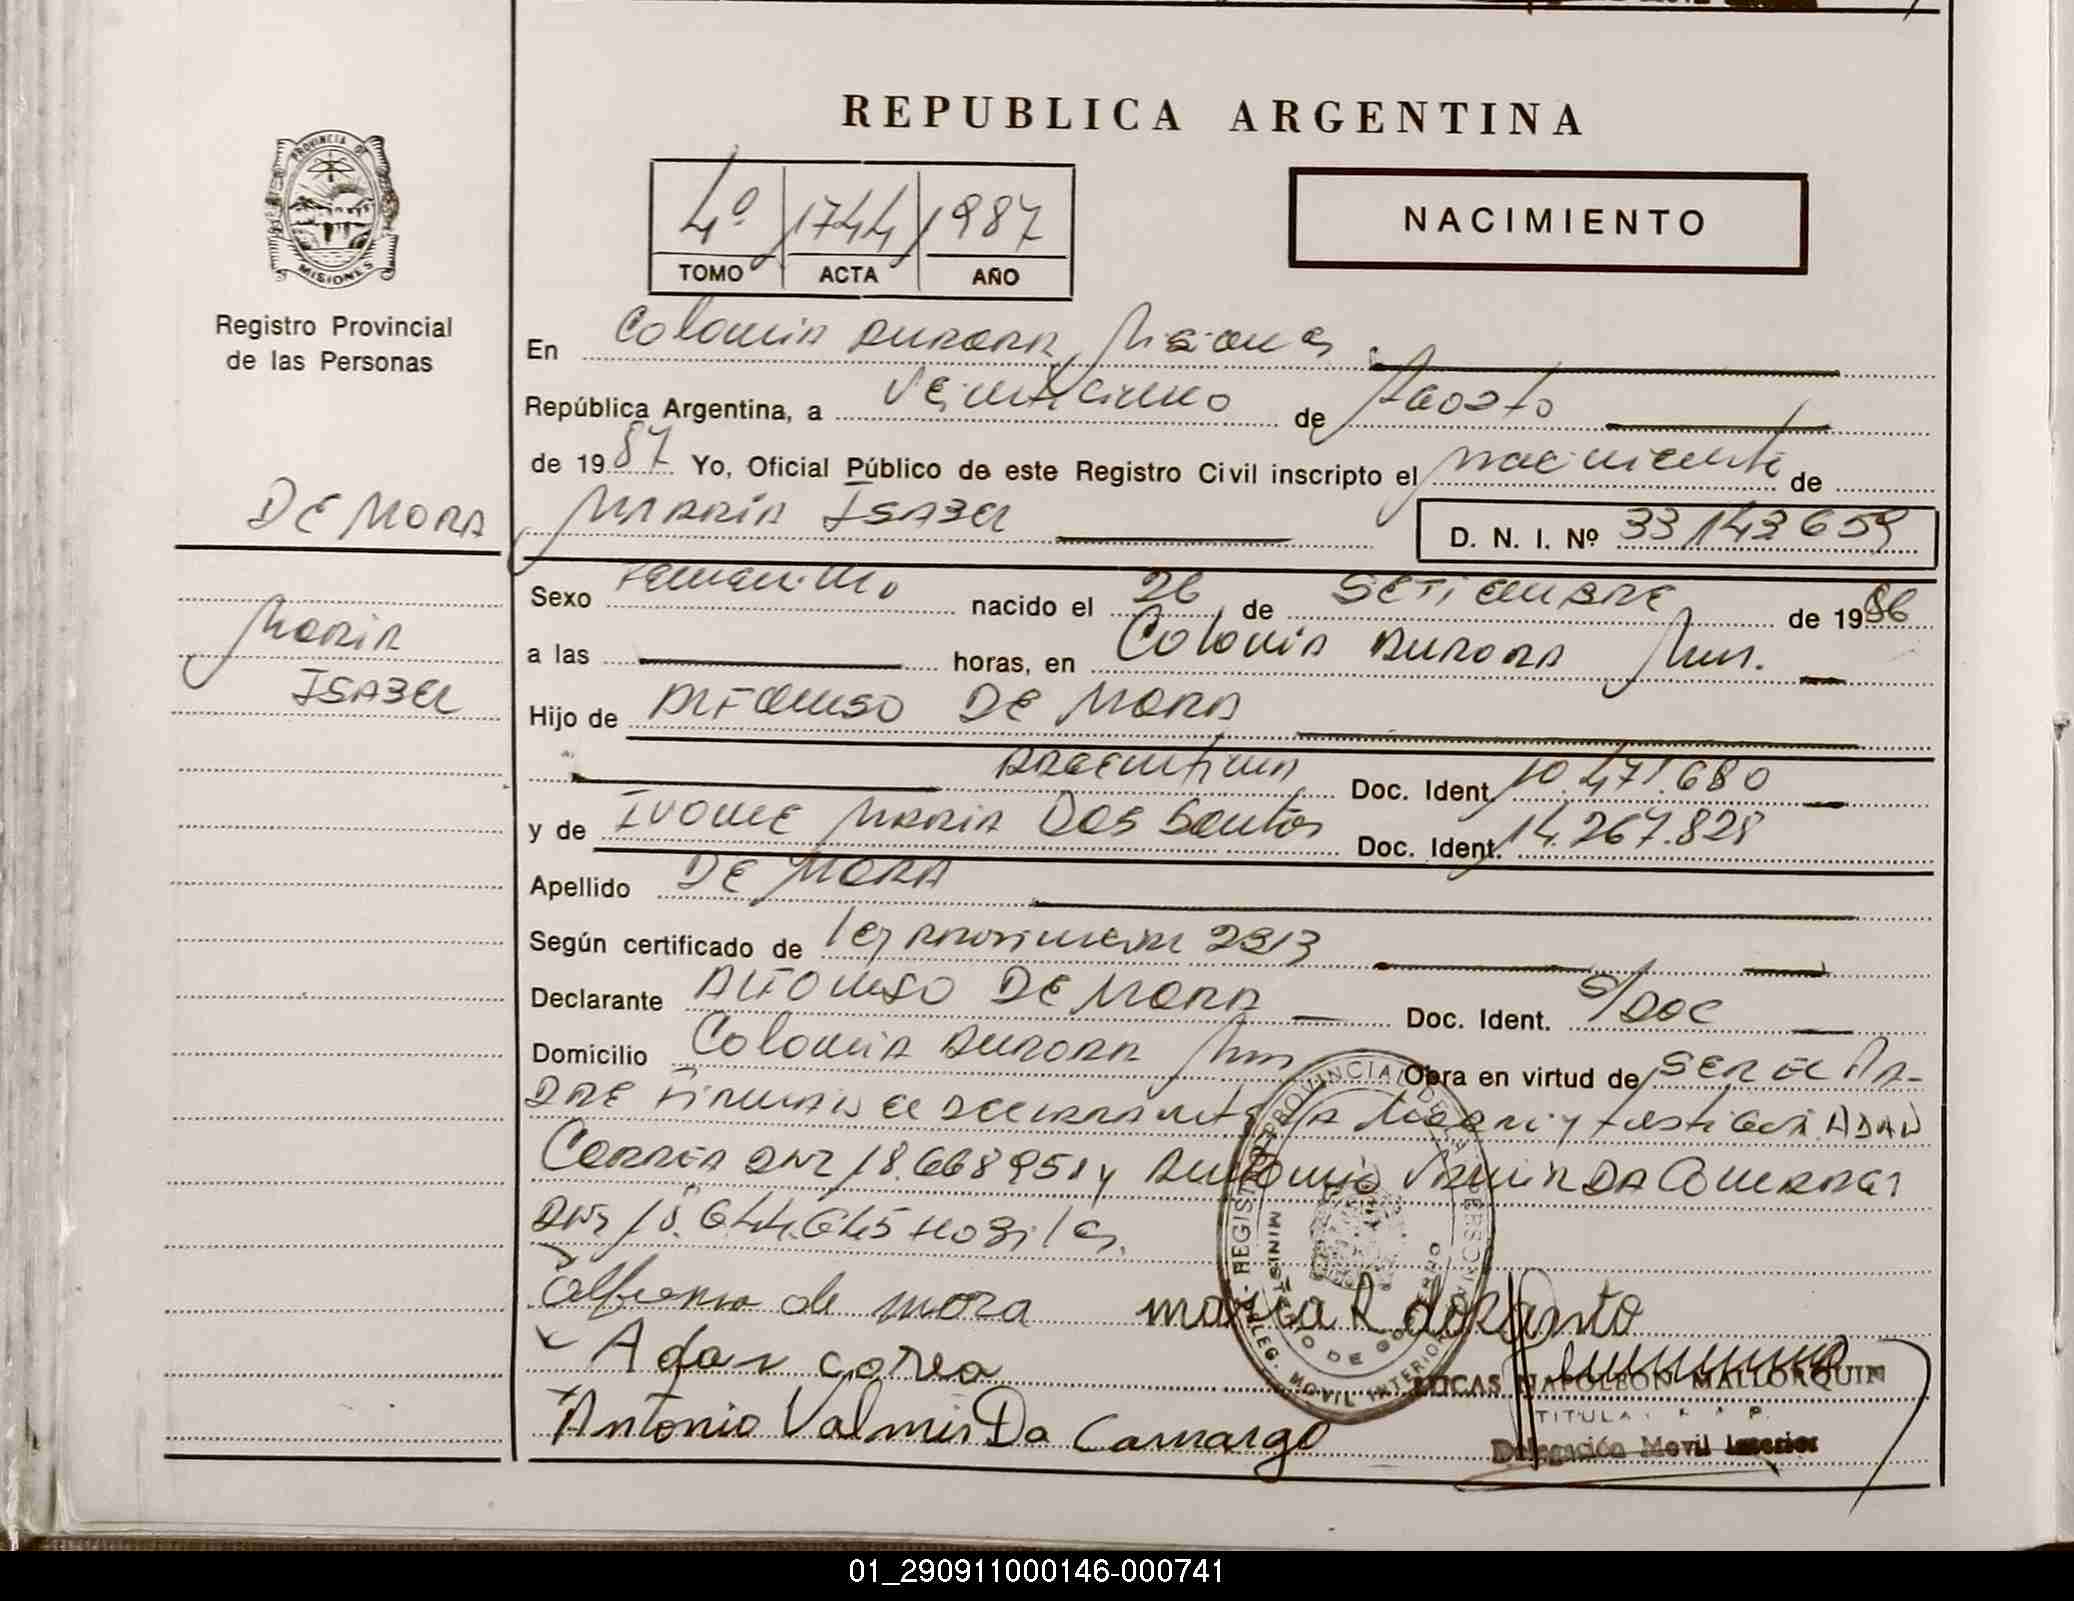 REPUBLICA ARGENTINA
PROVINCIA DE
MISIONES
Registro Provincial
de las Personas
4º 1744 1987
TOMO ACTA AÑO
NACIMIENTO
En Colonia Aurora, Misiones
República Argentina, a Veinticinco de Agosto
de 1987 Yo, Oficial Público de este Registro Civil inscripto el nacimiento de
DE MORA
MARIA ISABEL D. N. I. Nº 33143659
Sexo Femenino nacido el 26 de SETIEMBRE de 1986
MARIA
ISABEL
a las horas, en Colonia Aurora Mnes.
Hijo de ALFONSO DE MORA
Argentina Doc. Ident. 10.471.680
y de IVONE MARIA DOS SANTOS Doc. Ident. 14.267.828
Apellido DE MORA
Según certificado de Ley 2913
Declarante ALFONSO DE MORA Doc. Ident. S/DOC
Domicilio Colonia Aurora Mnes Obra en virtud de SER EL PA-
DRE Firman el declarante la y testigos ADAN
CORREA DNI 18.668951 y Antonio DA
DNI 18.644.645
alfonso de mora maria R dos Santo
Adan correa
Antonio Valmir Da Camargo
LUCAS NAPOLEON MALLORQUIN
TITULAR
Delegación Movil Interior
REGISTRO PROVINCIAL DE LAS PERSONAS
MINISTERIO DE GOBIERNO
DELEG. MOVIL INTERIOR
01_290911000146-000741